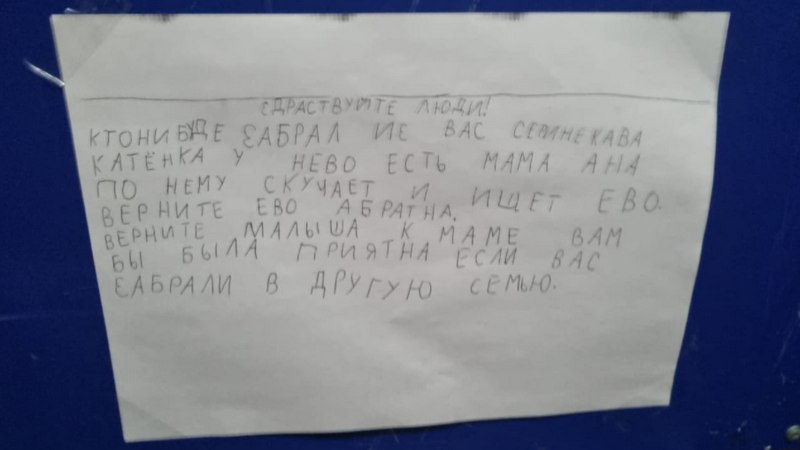 ЕДРАСТВУЙТЕ ЛЮДИ!
КТОНИБУДЕ ЕАБРАЛ ИЕ ВАС СЕМИНЕКАВА
КАТЁНКА У НЕВО ЕСТЬ МАМА АНА
ПО НЕМУ СКУЧАЕТ И ИЩЕТ ЕВО.
ВЕРНИТЕ ЕВО АБРАТНА.
ВЕРНИТЕ МАЛЫША К МАМЕ ВАМ
БЫ БЫЛА ПРИЯТНА ЕСЛИ ВАС
ЕАБРАЛИ В ДРУГУЮ СЕМЬЮ.